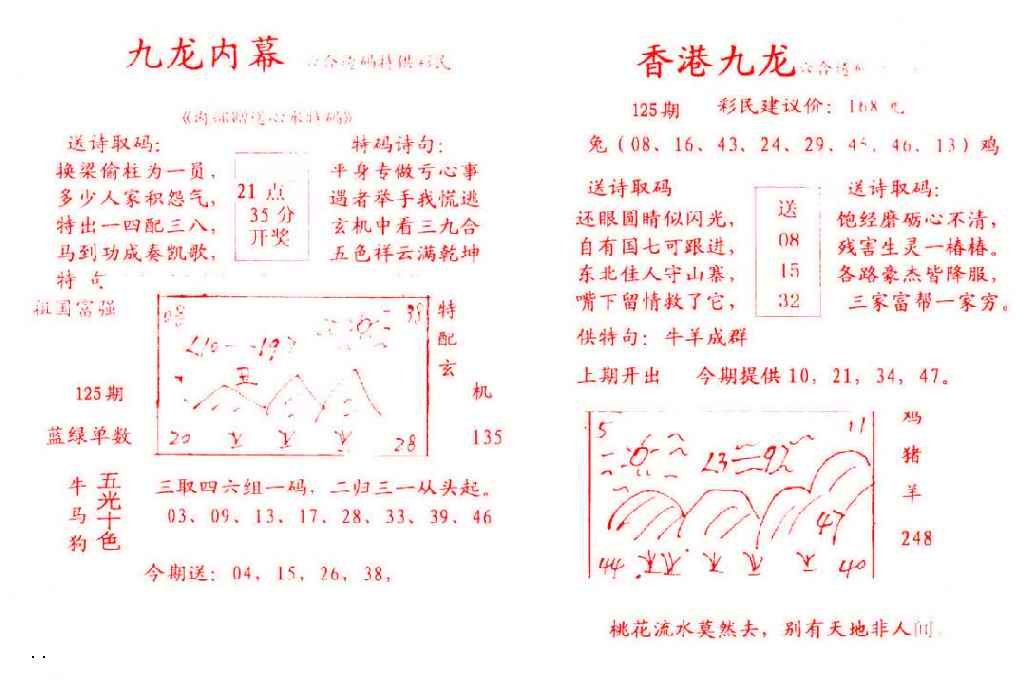 九龙内幕
送诗取码：
换梁偷柱为一员，
多少人家积怨气，
特出一四配三八，
马到功成奏凯歌，
特 句
祖国富强
21 点
35 分
开奖
特码诗句：
半身专做亏心事
遇者举手我慌逃
玄机中看三九合
五色祥云满乾坤
08
38
丑
20
28
特
配
玄
机
135
125期
蓝绿单数
牛
马
狗
五
光
十
色
三取四六组一码，二归三一从头起。
03、09、13、17、28、33、39、46
今期送：04、15、26、38，
香港九龙
125期 彩民建议价：168
兔（08、16、43、24、29、45、46、13）鸡
送诗取码
还眼圆睛似闪光，
自有国七可跟进，
东北佳人守山寨，
嘴下留情救了它，
送
08
15
32
送诗取码：
饱经磨砺心不清，
残害生灵一椿椿。
各路豪杰皆降服，
三家富帮一家穷。
供特句：牛羊成群
上期开出 今期提供10，21，34，47。
5
11
47
44
40
鸡
猪
羊
248
桃花流水莫然去，别有天地非人间。